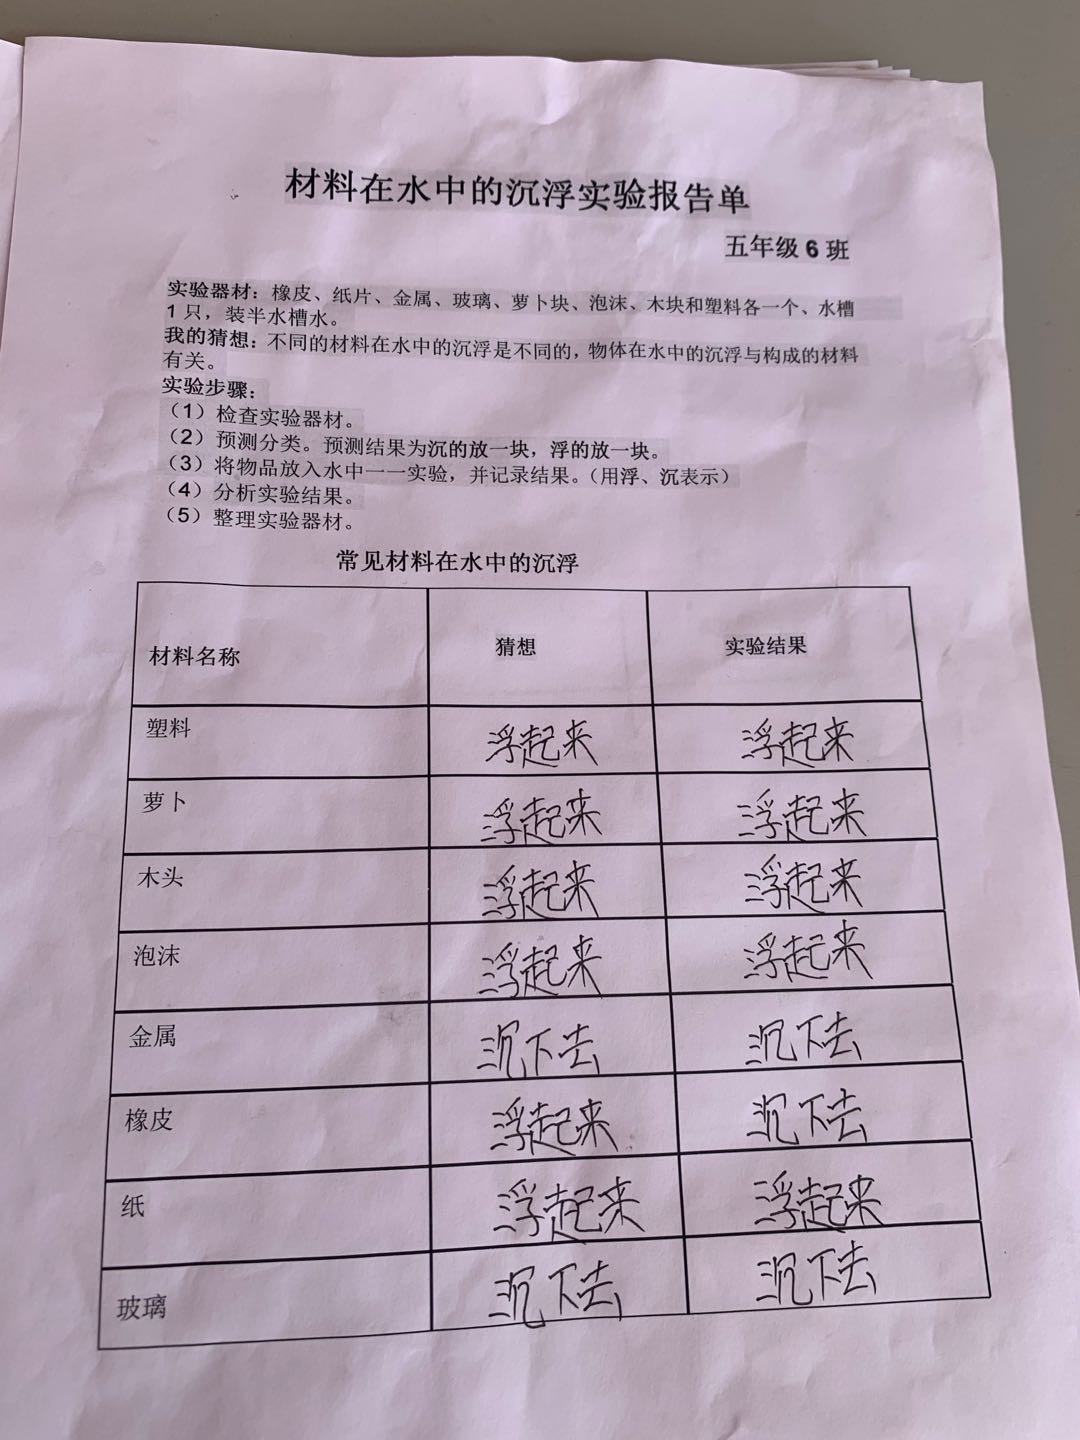 材料在水中的沉浮实验报告单
五年级 6 班
实验器材：橡皮、纸片、金属、玻璃、萝卜块、泡沫、木块和塑料各一个、水槽
1 只，装半水槽水。
我的猜想：不同的材料在水中的沉浮是不同的，物体在水中的沉浮与构成的材料
有关。
实验步骤：
（1）检查实验器材。
（2）预测分类。预测结果为沉的放一块，浮的放一块。
（3）将物品放入水中一一实验，并记录结果。（用浮、沉表示）
（4）分析实验结果。
（5）整理实验器材。
常见材料在水中的沉浮
材料名称 猜想 实验结果
塑料 浮起来 浮起来
萝卜 浮起来 浮起来
木头 浮起来 浮起来
泡沫 浮起来 浮起来
金属 沉下去 沉下去
橡皮 浮起来 沉下去
纸 浮起来 浮起来
玻璃 沉下去 沉下去